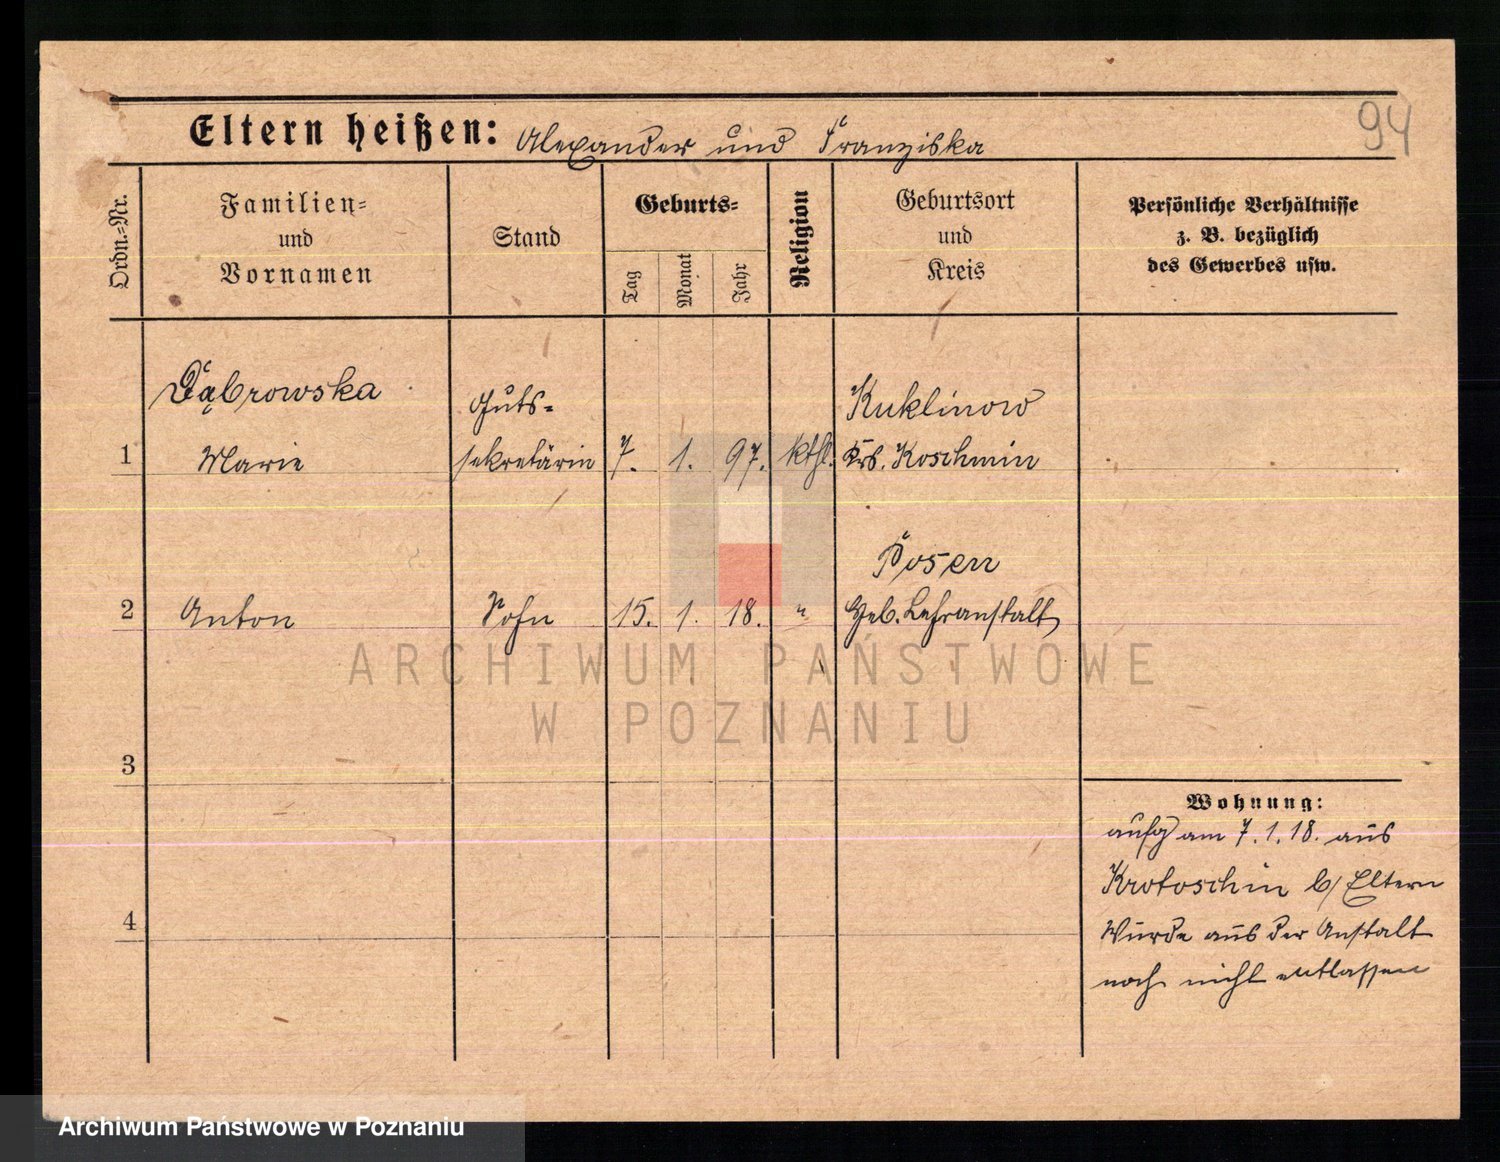 94
Eltern heißen: Alexander und Franziska
Ordn.-Nr.
Familien-
und
Vornamen
Stand
Geburts-
Tag
Monat
Jahr
Religion
Geburtsort
und
Kreis
Persönliche Verhältnisse
z. B. bezüglich
des Gewerbes usw.
Dąbrowska
Guts-
Kuklinow
1 Marie sekretärin 7. 1. 97. kthl. Krs. Koschmin
Posen
2 Anton Sohn 15. 1. 18. " Heb. Lehranstalt
3
4
Wohnung:
aufg am 7.1.18. aus
Krotoschin b/ Eltern
Wurde aus der Anstalt
noch nicht entlassen
ARCHIWUM PAŃSTWOWE
W POZNANIU
Archiwum Państwowe w Poznaniu